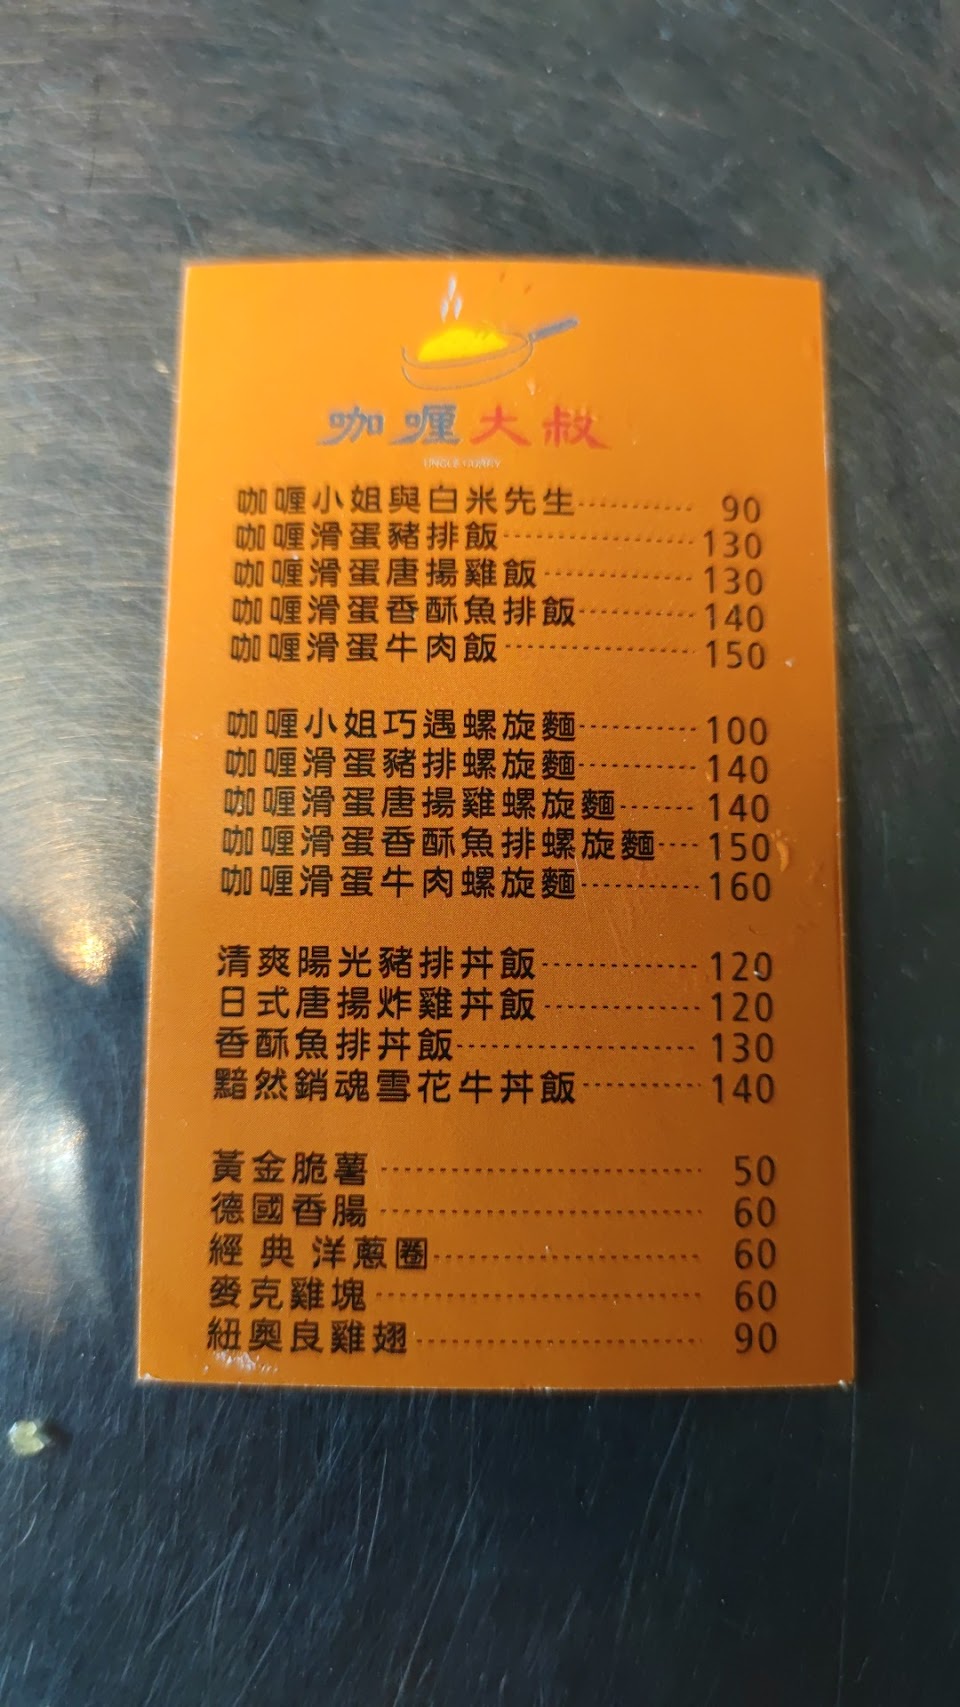 咖喱大叔
UNCLE CURRY
咖喱小姐與白米先生 90
咖喱滑蛋豬排飯 130
咖喱滑蛋唐揚雞飯 130
咖喱滑蛋香酥魚排飯 140
咖喱滑蛋牛肉飯 150
咖喱小姐巧遇螺旋麵 100
咖喱滑蛋豬排螺旋麵 140
咖喱滑蛋唐揚雞螺旋麵 140
咖喱滑蛋香酥魚排螺旋麵 150
咖喱滑蛋牛肉螺旋麵 160
清爽陽光豬排丼飯 120
日式唐揚炸雞丼飯 120
香酥魚排丼飯 130
黯然銷魂雪花牛丼飯 140
黃金脆薯 50
德國香腸 60
經典洋蔥圈 60
麥克雞塊 60
紐奧良雞翅 90